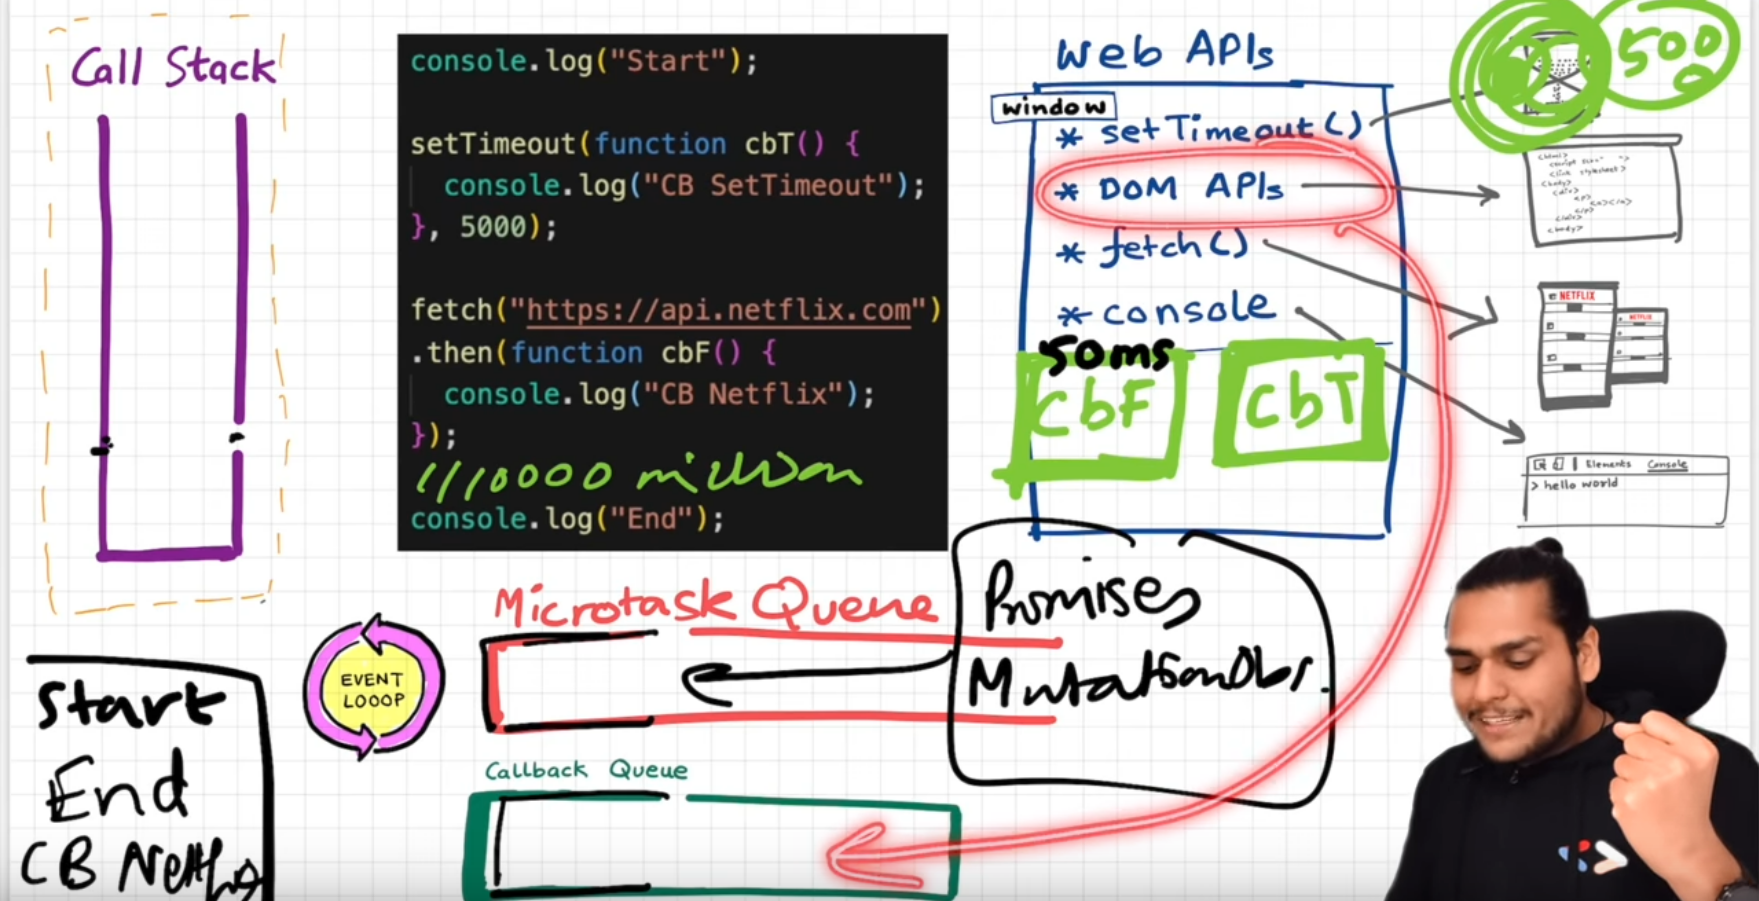 Call Stack
console.log("Start");
setTimeout(function cbT() {
console.log("CB SetTimeout");
}, 5000);
fetch("https://api.netflix.com")
.then(function cbF() {
console.log("CB Netflix");
});
million
console.log("End");
Web APIs
window
* setTimeout()
* DOM APIs
* fetch()
* console
50ms
CbF
CbT
500
0
NETFLIX
NETFLIX
Elements Console
> hello world
Microtask Queue
Promises
MutationObs.
EVENT
LOOOP
Callback Queue
Start
End
CB